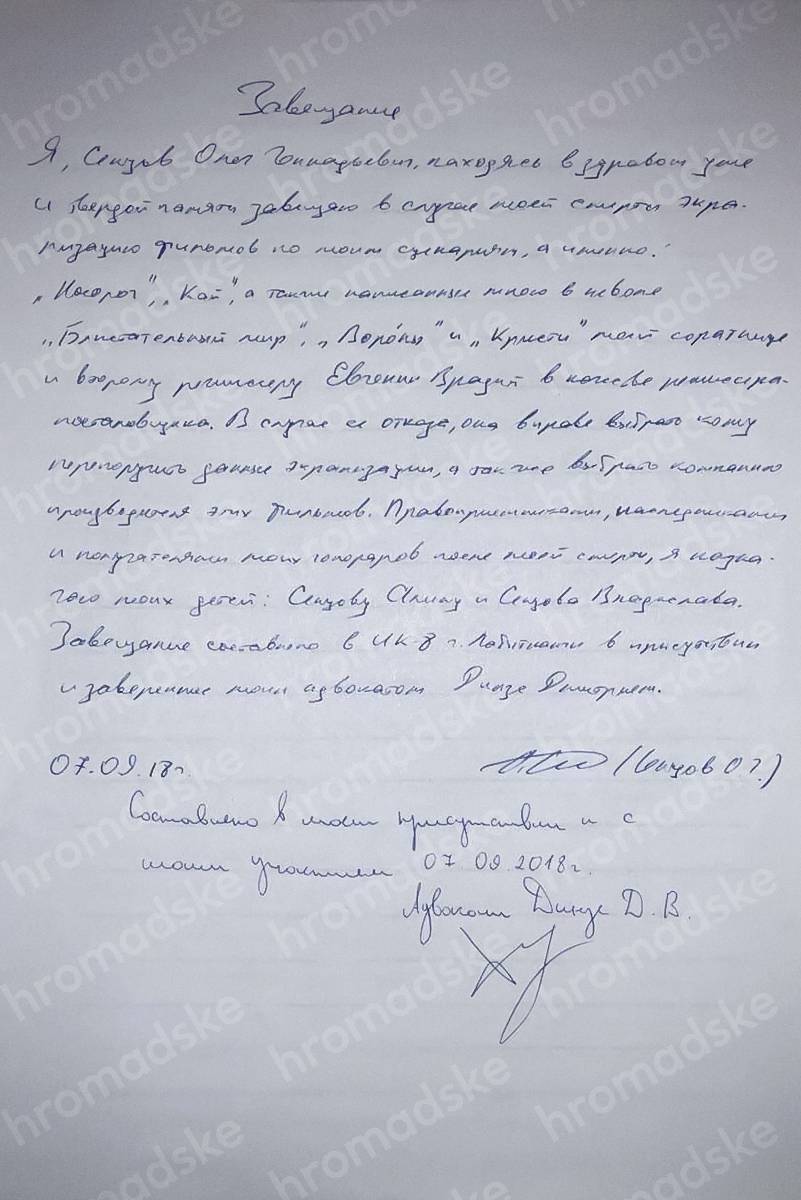 Завещание
Я, Сенцов Олег Геннадьевич, находясь в здравом уме
и твердой памяти завещаю в случае моей смерти экра-
низацию фильмов по моим сценариям, а именно:
„Носорог", „Кай", а также написанные мною в неволе
„Блистательный мир", „Воро́ны" и „Кристи" моей соратнице
и второму режиссеру Евгении Врадий в качестве режиссера-
постановщика. В случае ее отказа, она вправе выбрать кому
перепоручить данные экранизации, а так же выбрать компанию
производителя этих фильмов. Правоприемниками, наследниками
и получателями моих гонораров после моей смерти, я назна-
чаю моих детей: Сенцову Алину и Сенцова Владислава.
Завещание составлено в ИК-8 г. Лабытнанги в присутствии
и заверение моим адвокатом Динзе Дмитрием.
07.09.18г. (Сенцов О Г.)
Составлено в моем присутствии и с
моим участием 07.09.2018г.
Адвокат Динзе Д. В.
hromadske